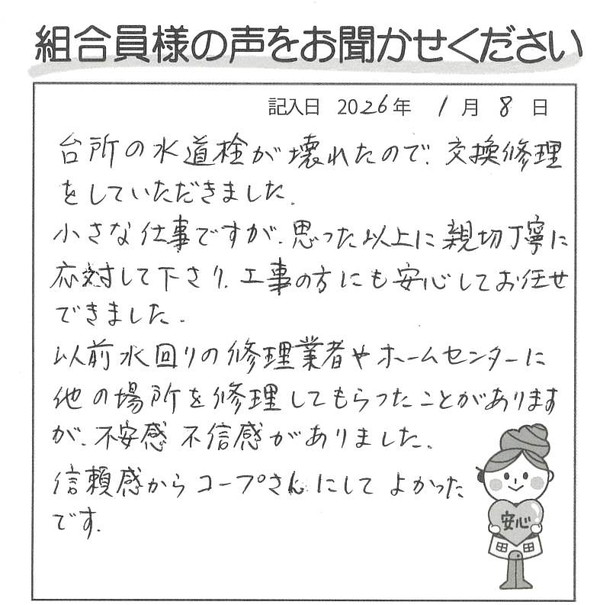 組合員様の声をお聞かせください
記入日 2026年 1月 8日
台所の水道栓が壊れたので、交換修理
をしていただきました。
小さな仕事ですが、思った以上に親切丁寧に
応対して下さり、工事の方にも安心してお任せ
できました。
以前水回りの修理業者やホームセンターに
他の場所を修理してもらったことがあります
が、不安感 不信感がありました。
信頼感からコープさんにして よかった
です。
安心